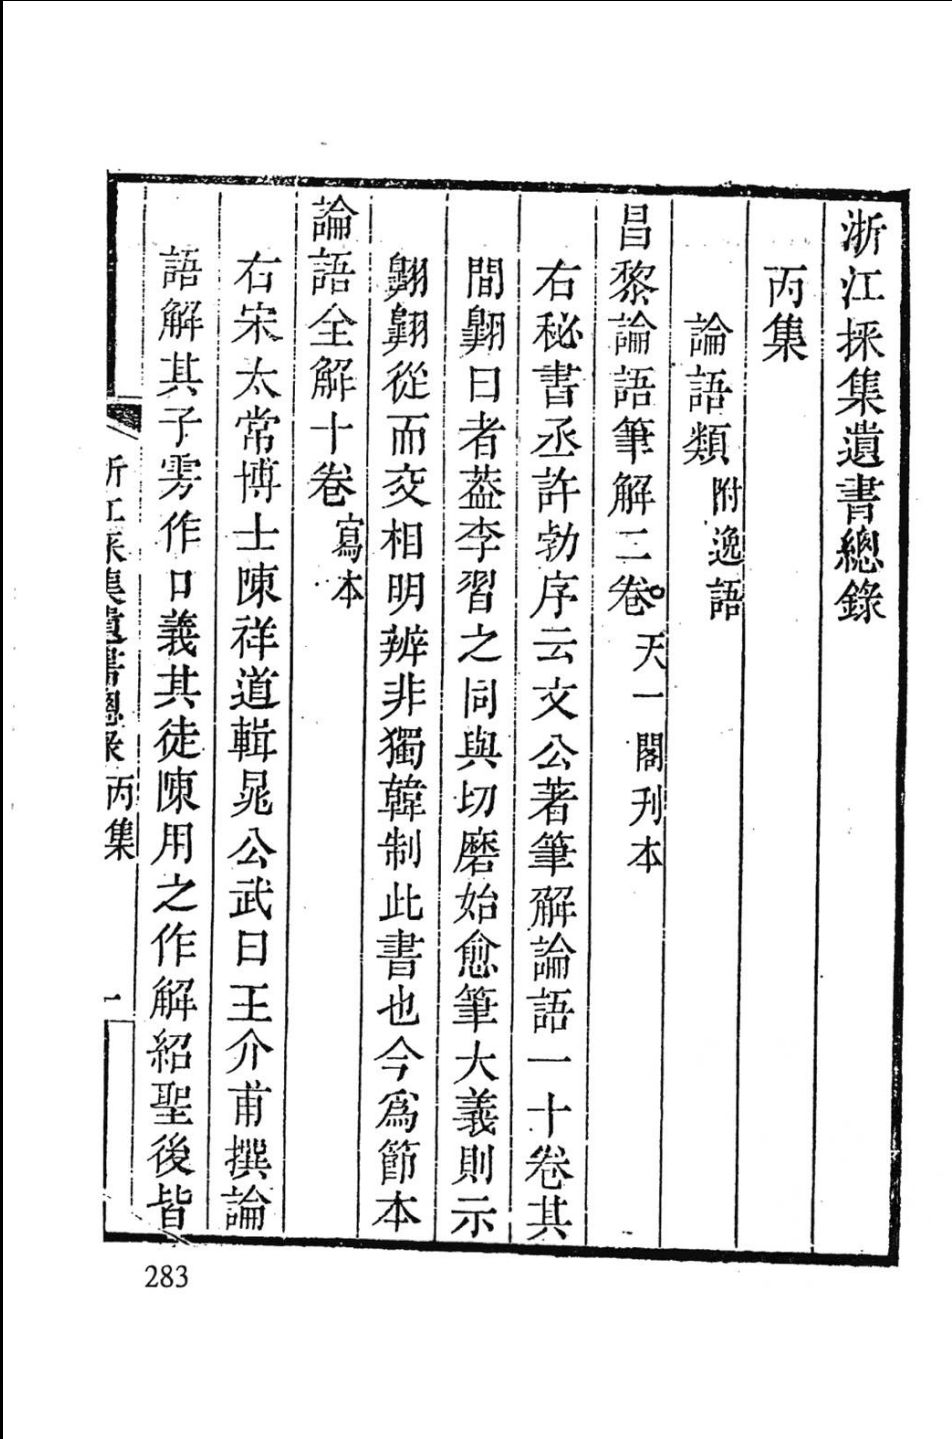 浙江採集遺書總錄
丙集
論語類附逸語
昌黎論語筆解二卷天一閣刋本
右秘書丞許勃序云文公著筆解論語一十卷其
間翺曰者葢李習之同與切磨始愈筆大義則示
翺翺從而交相明辨非獨韓制此書也今為節本
論語全解十卷寫本
右宋太常博士陳祥道輯晁公武曰王介甫撰論
語解其子雱作口義其徒陳用之作解紹聖後皆
浙江採集遺書總錄 丙集 一
283